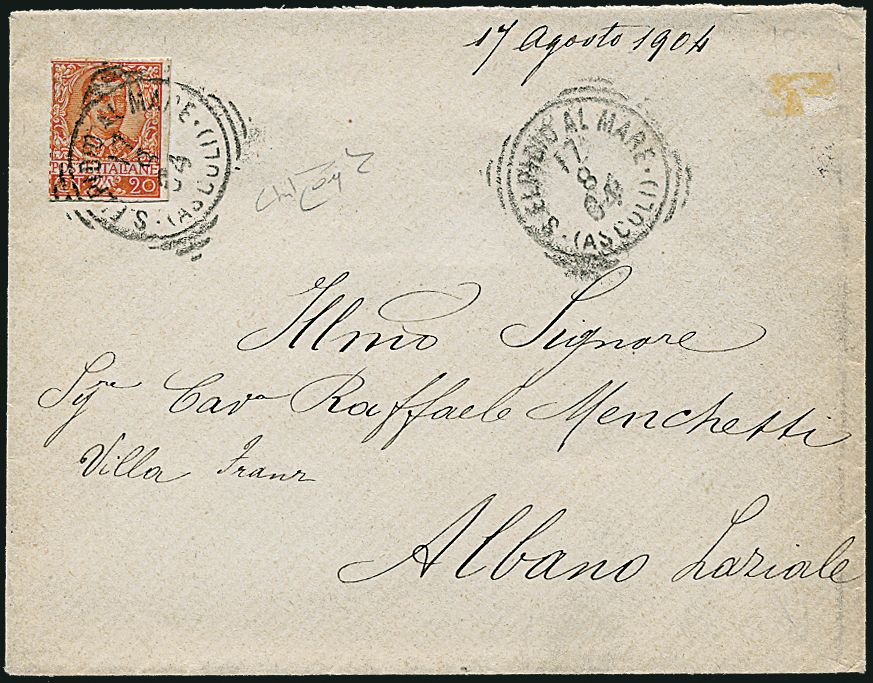 17 Agosto 1904
POSTE ITALIANE
20
S. ELPIDIO AL MARE · (ASCOLI)
17
8
04
S. ELPIDIO AL MARE · (ASCOLI)
17
8
04
Illmo Signore
Sigr Cavr Raffaele Menchetti
Villa Franz
Albano Laziale